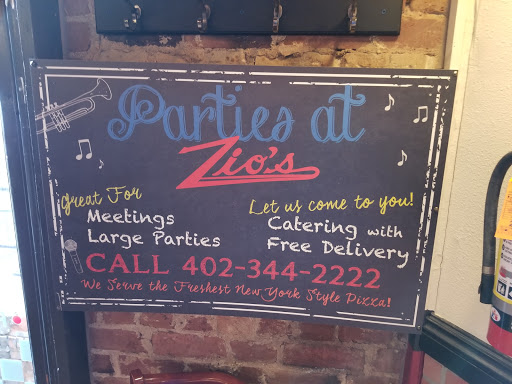 Parties at
Zio's
Great For
Meetings
Large Parties
Let us come to you!
Catering with
Free Delivery
CALL 402-344-2222
We Serve the Freshest New York Style Pizza!